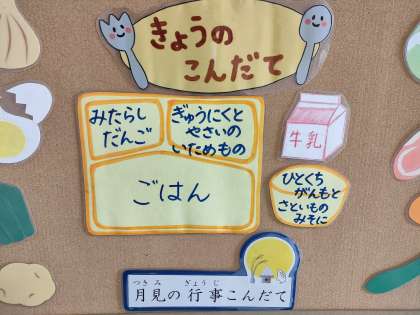 きょうの
こんだて
みたらし
だんご
ぎゅうにくと
やさいの
いためもの
ごはん
牛乳
ひとくち
がんもと
さといもの
みそに
つきみ ぎょうじ
月見の行事こんだて